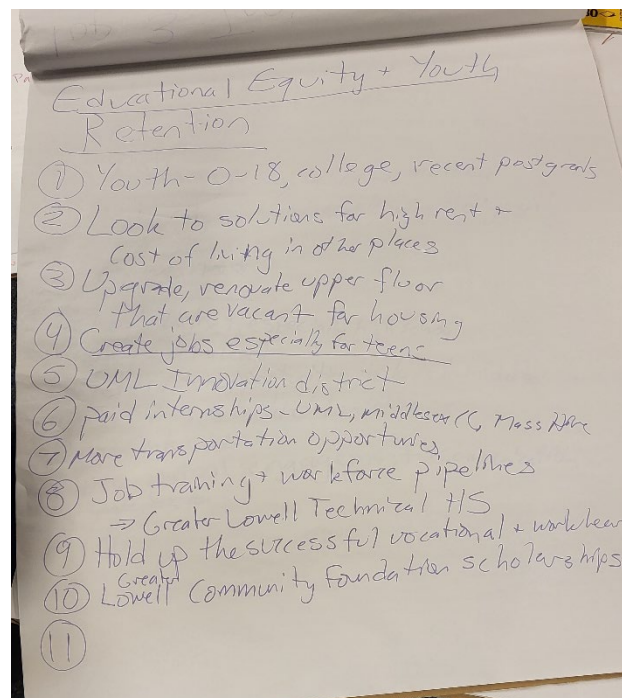 Educational Equity + Youth
Retention
① Youth - 0-18, college, recent postgrads
② Look to solutions for high rent +
Cost of living in other places
③ Upgrade, renovate upper floor
that are vacant for housing
④ Create jobs especially for teens
⑤ UML Innovation district
⑥ paid internships - UML, Middlesex CC, Mass Hire
⑦ More transportation
⑧ Job training + workforce pipelines
→ Greater Lowell Technical HS
⑨ Hold up the successful vocational +
Greater
⑩ Lowell Community Foundation scholarships
⑪